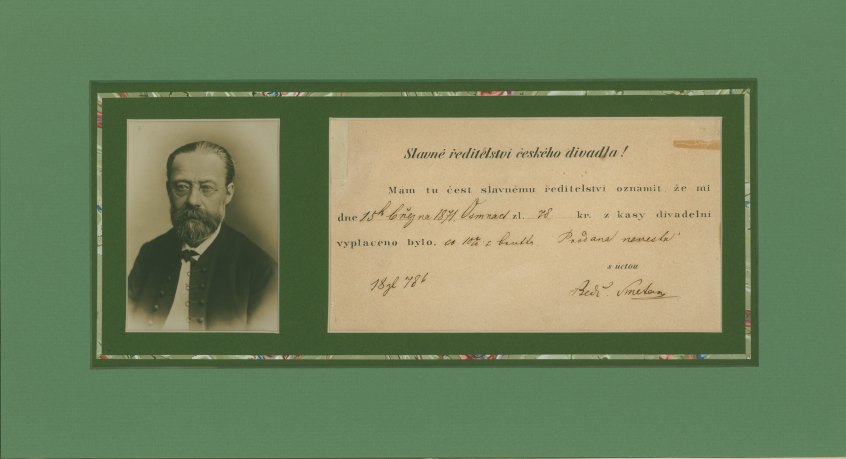 Slavné ředitelství českého divadla!
Mám tu čest slavnému ředitelství oznámit, že mi
dne 15h 1871 Osmnáct zl. 78 kr. z kasy divadelní
vyplaceno bylo, co 10% z brutto Prodaná nevěsta
s úctou
18 zl 78 k
Bedř. Smetana